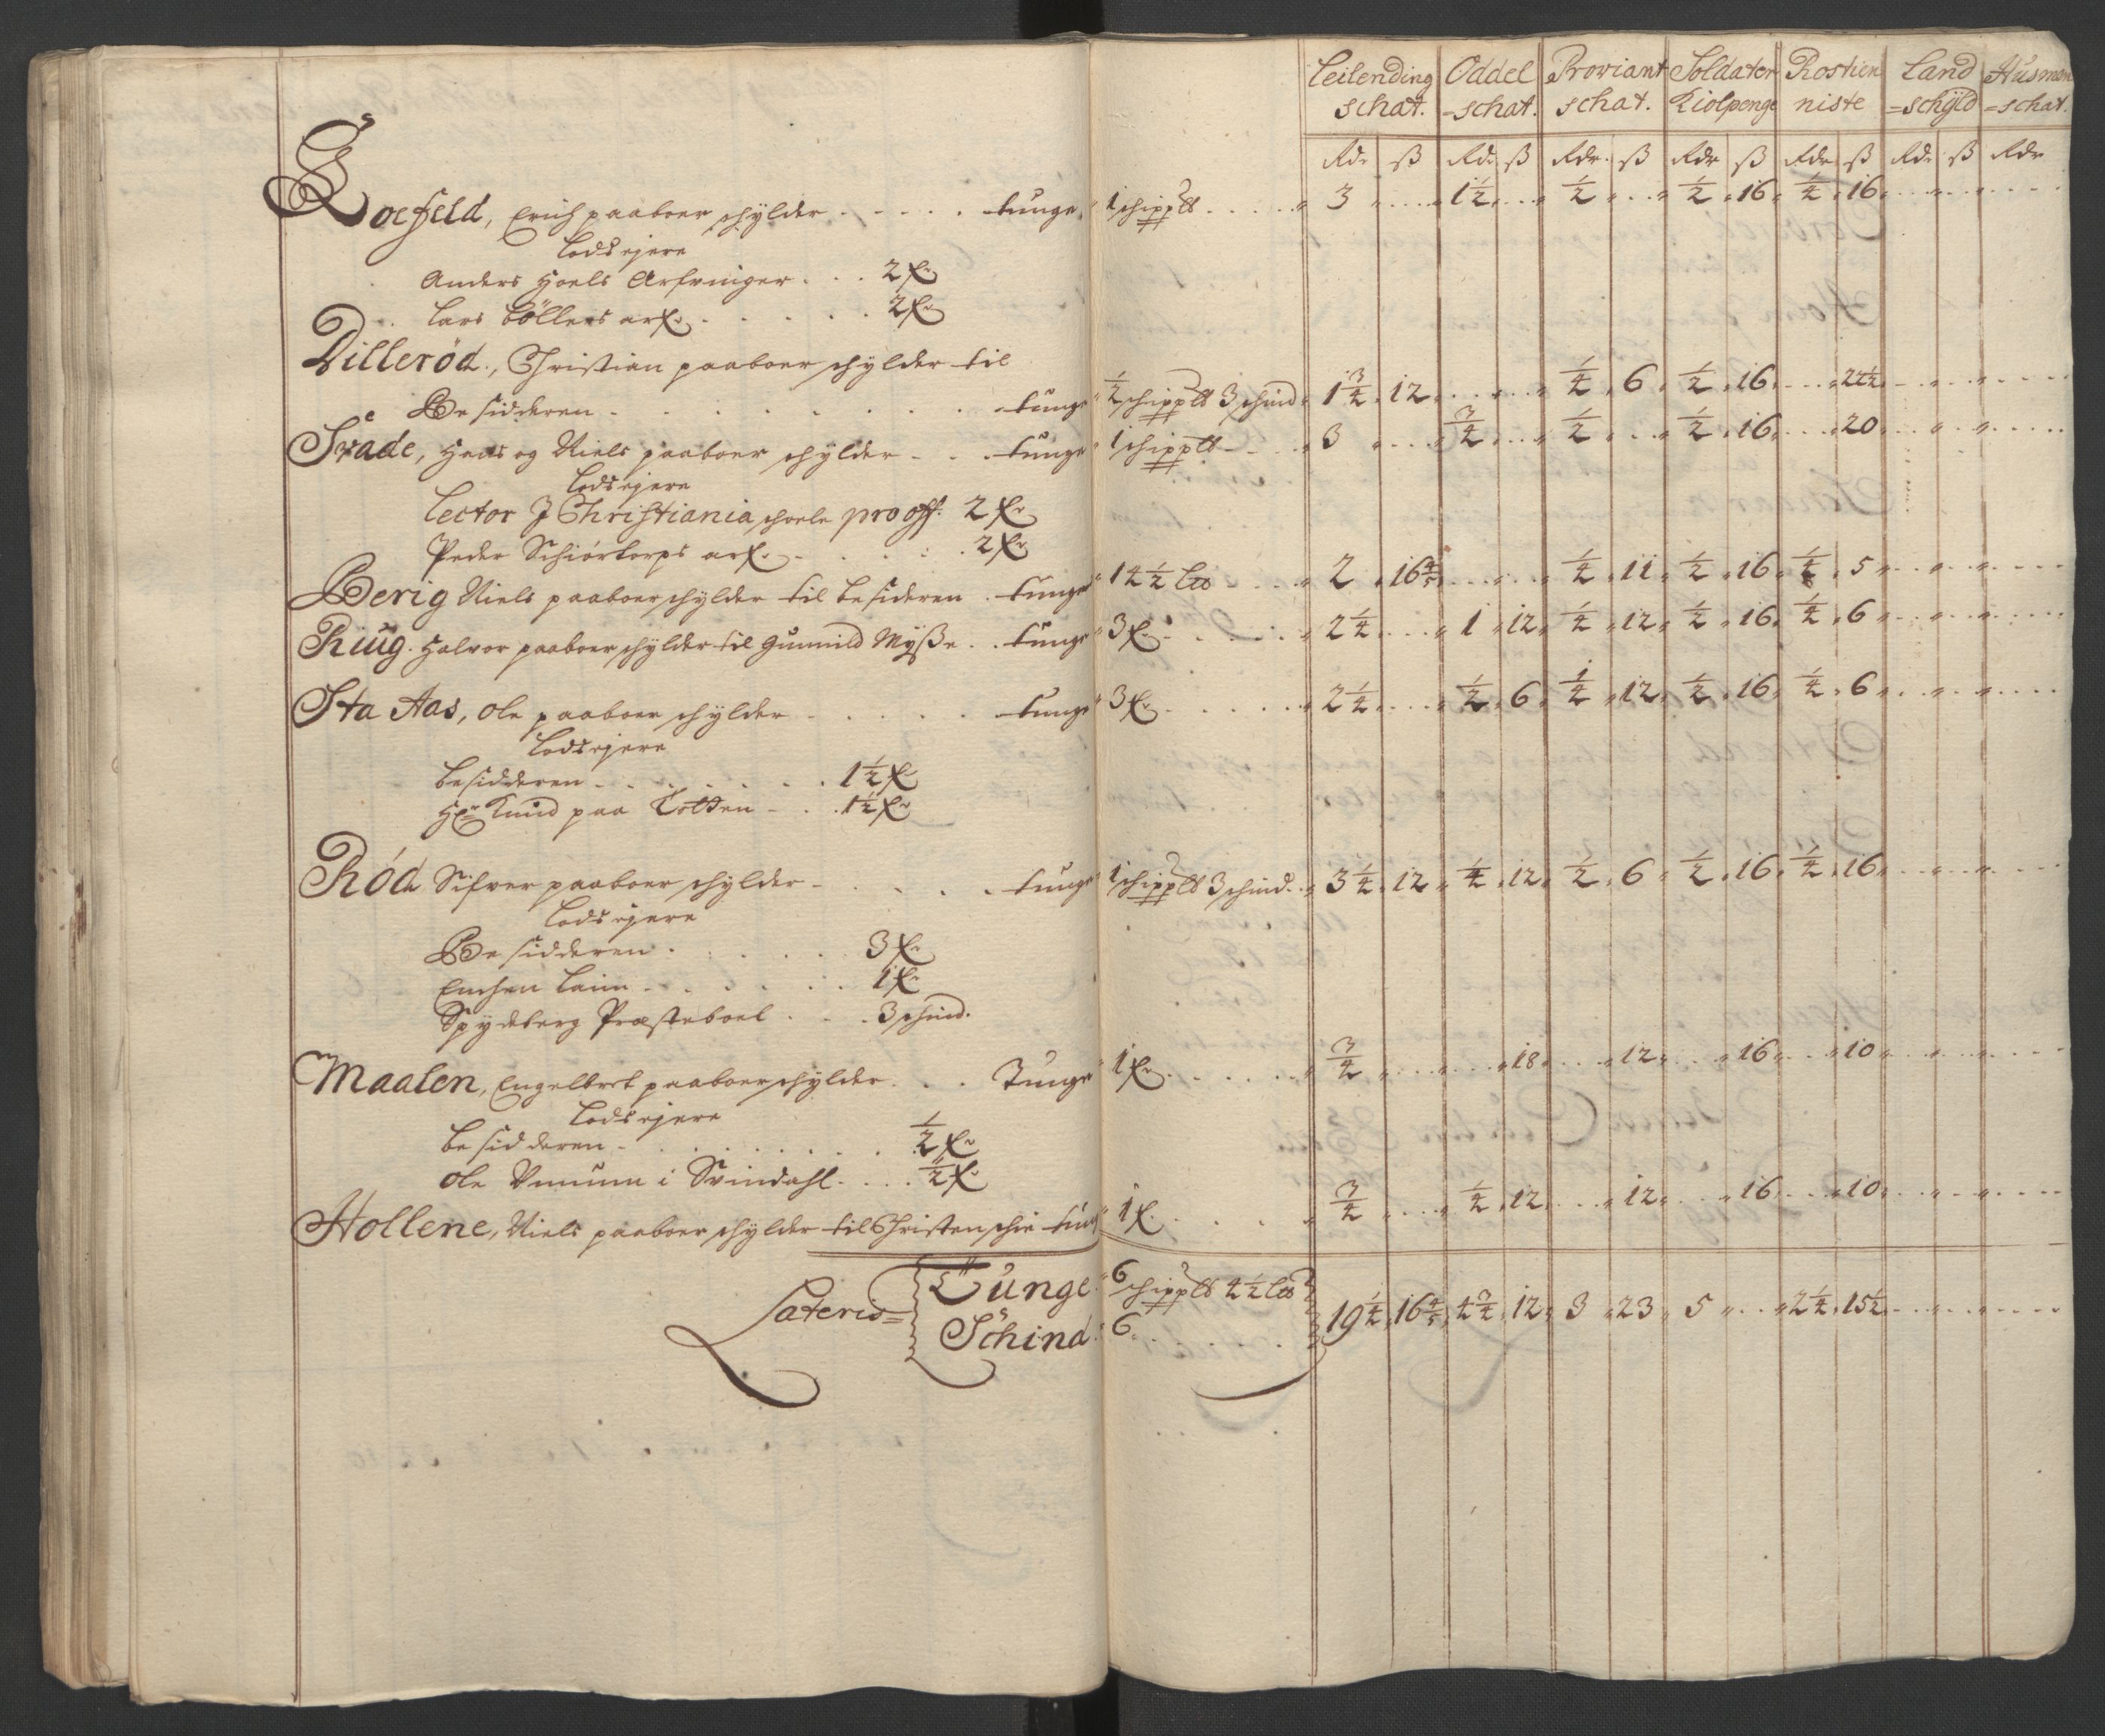 Leilending schat. Oddel =schat. Proviant schat. Soldater Kiolpenge Rostien niste Land =schÿld Husmen =schat.
Rdr ß Rdr ß Rdr ß Rdr ß Rdr ß Rdr ß Rdr
Erich paaboer schÿlder tunge 1 schipp℔ 3 1½ ½ ½ 16 ¼ 16
Lodsejere
Anders Hoels Arfvinger 2 ₤
Lars Böllers arf. 2 ₤
Dilleröd, Christian paaboer schÿlder til
Besidderen tunge ½ schippℓ℔ 3 schind 1¾ 12 ¼ 6 ½ 16 22½
Svade, Hans og Niels paaboer schÿlder tunge 1 schippℓ℔ 3 ¾ ½ ½ 16 20
Lodsejere
Lector I Christiania schoele pro off. 2 ₤
Peder Schiörtorps arf. 2 ₤
Berig Niels paaboer schÿlder til besideren tunge 14½ ℔ 2 16⅘ ¼ 11 ½ 16 ¼ 5
Riug. Halvor paaboer schÿlder til Gunnild Mÿße tunge 3 ₤ 2¼ 1 12 ¼ 12 ½ 16 ¼ 6
Sta Aas, Ole paaboer schÿlder tunge 3 ₤ 2¼ ½ 6 ¼ 12 ½ 16 ¼ 6
Lodsejere
besidderen 1½ ₤
Hr Knud paa Totten 1½ ₤
Röd Sifver paaboer schÿlder tunge 1 schippℓ℔ 3 schind. 3¼ 12 ¼ 12 ½ 6 ½ 16 ¼ 16
Lodsejere
Besidderen 3 ₤
1 ₤
Spÿdeberg Præsteboel 3 schind.
Maalen, Engelbret paaboer schÿlder Tunge 1 ₤ ¾ 18 12 16 10
Lodsejere
besidderen ½ ₤
Ole i Svindahl ½ ₤
Hollene, Niels paaboer schÿlder til Christen tung 1 ₤ ¾ ¼ 12 12 16 10
Lateris= Tunge 6 schippℓ℔ 4½ ℔
Schind 6 19¼ 16⅘ 4¾ 12 3 23 5 2¼ 15½